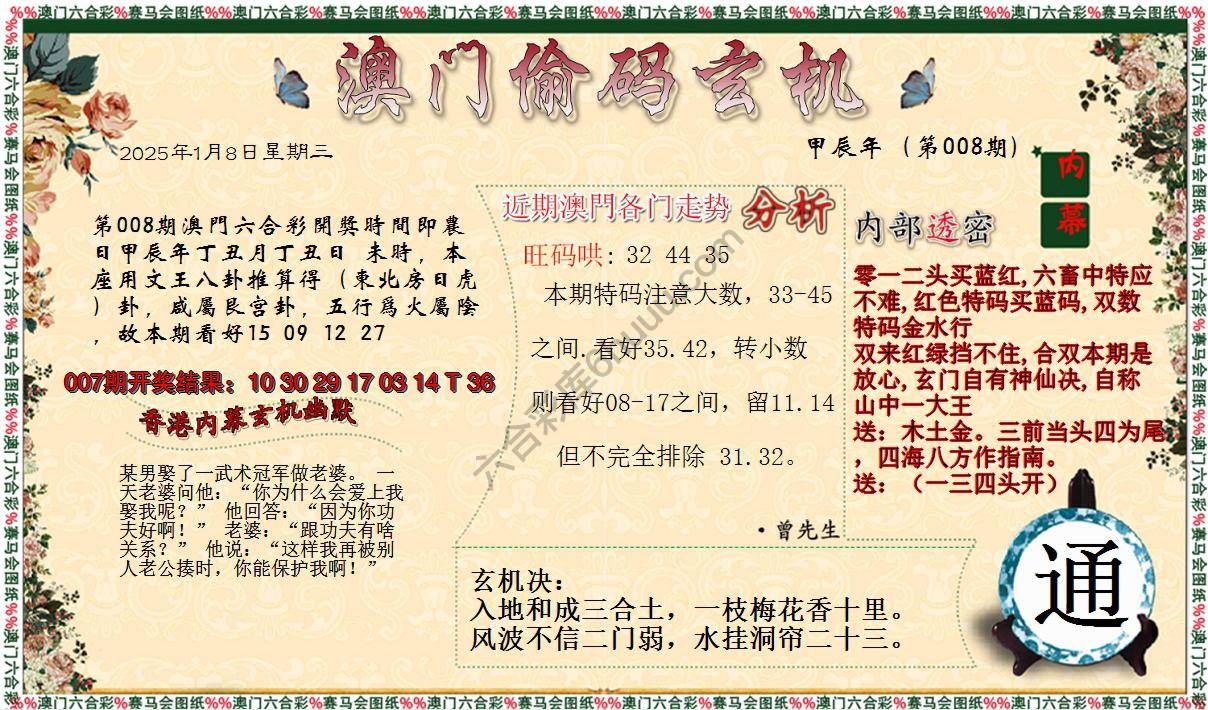 %%澳门六合彩%赛马会图纸%%澳门六合彩%赛马会图纸%%澳门六合彩%赛马会图纸%%澳门六合彩%赛马会图纸%%澳门六合彩%赛马会图纸%%澳门六合彩%赛马会图纸
澳门偷码玄机
2025年1月8日星期三
甲辰年(第008期)
内
幕
第008期澳門六合彩開獎時間即農
日甲辰年丁丑月丁丑日 未時,本
座用文王八卦推算得(東北房日虎
)卦,咸屬艮宫卦,五行爲火屬陰
,故本期看好15 09 12 27
007期开奖结果:10 30 29 17 03 14 T 36
香港内幕玄机幽默
某男娶了一武术冠军做老婆。 一
天老婆问他:“你为什么会爱上我
娶我呢?” 他回答:“因为你功
夫好啊!” 老婆:“跟功夫有啥
关系?” 他说:“这样我再被别
人老公揍时,你能保护我啊!”
近期澳門各门走勢 分析
旺码哄: 32 44 35
本期特码注意大数,33-45
之间.看好35.42,转小数
则看好08-17之间,留11.14
但不完全排除 31.32。
·曾先生
内部透密
零一二头买蓝红,六畜中特应
不难,红色特码买蓝码,双数
特码金水行
双来红绿挡不住,合双本期是
放心,玄门自有神仙决,自称
山中一大王
送:木土金。三前当头四为尾
,四海八方作指南。
送:(一三四头开)
玄机决:
入地和成三合土,一枝梅花香十里。
风波不信二门弱,水挂洞帘二十三。
通
%%澳门六合彩%赛马会图纸%%澳门六合彩%赛马会图纸%%澳门六合彩%赛马会图纸%%澳门六合彩%赛马会图纸%%澳门六合彩%赛马会图纸%%澳门六合彩%赛马会图纸